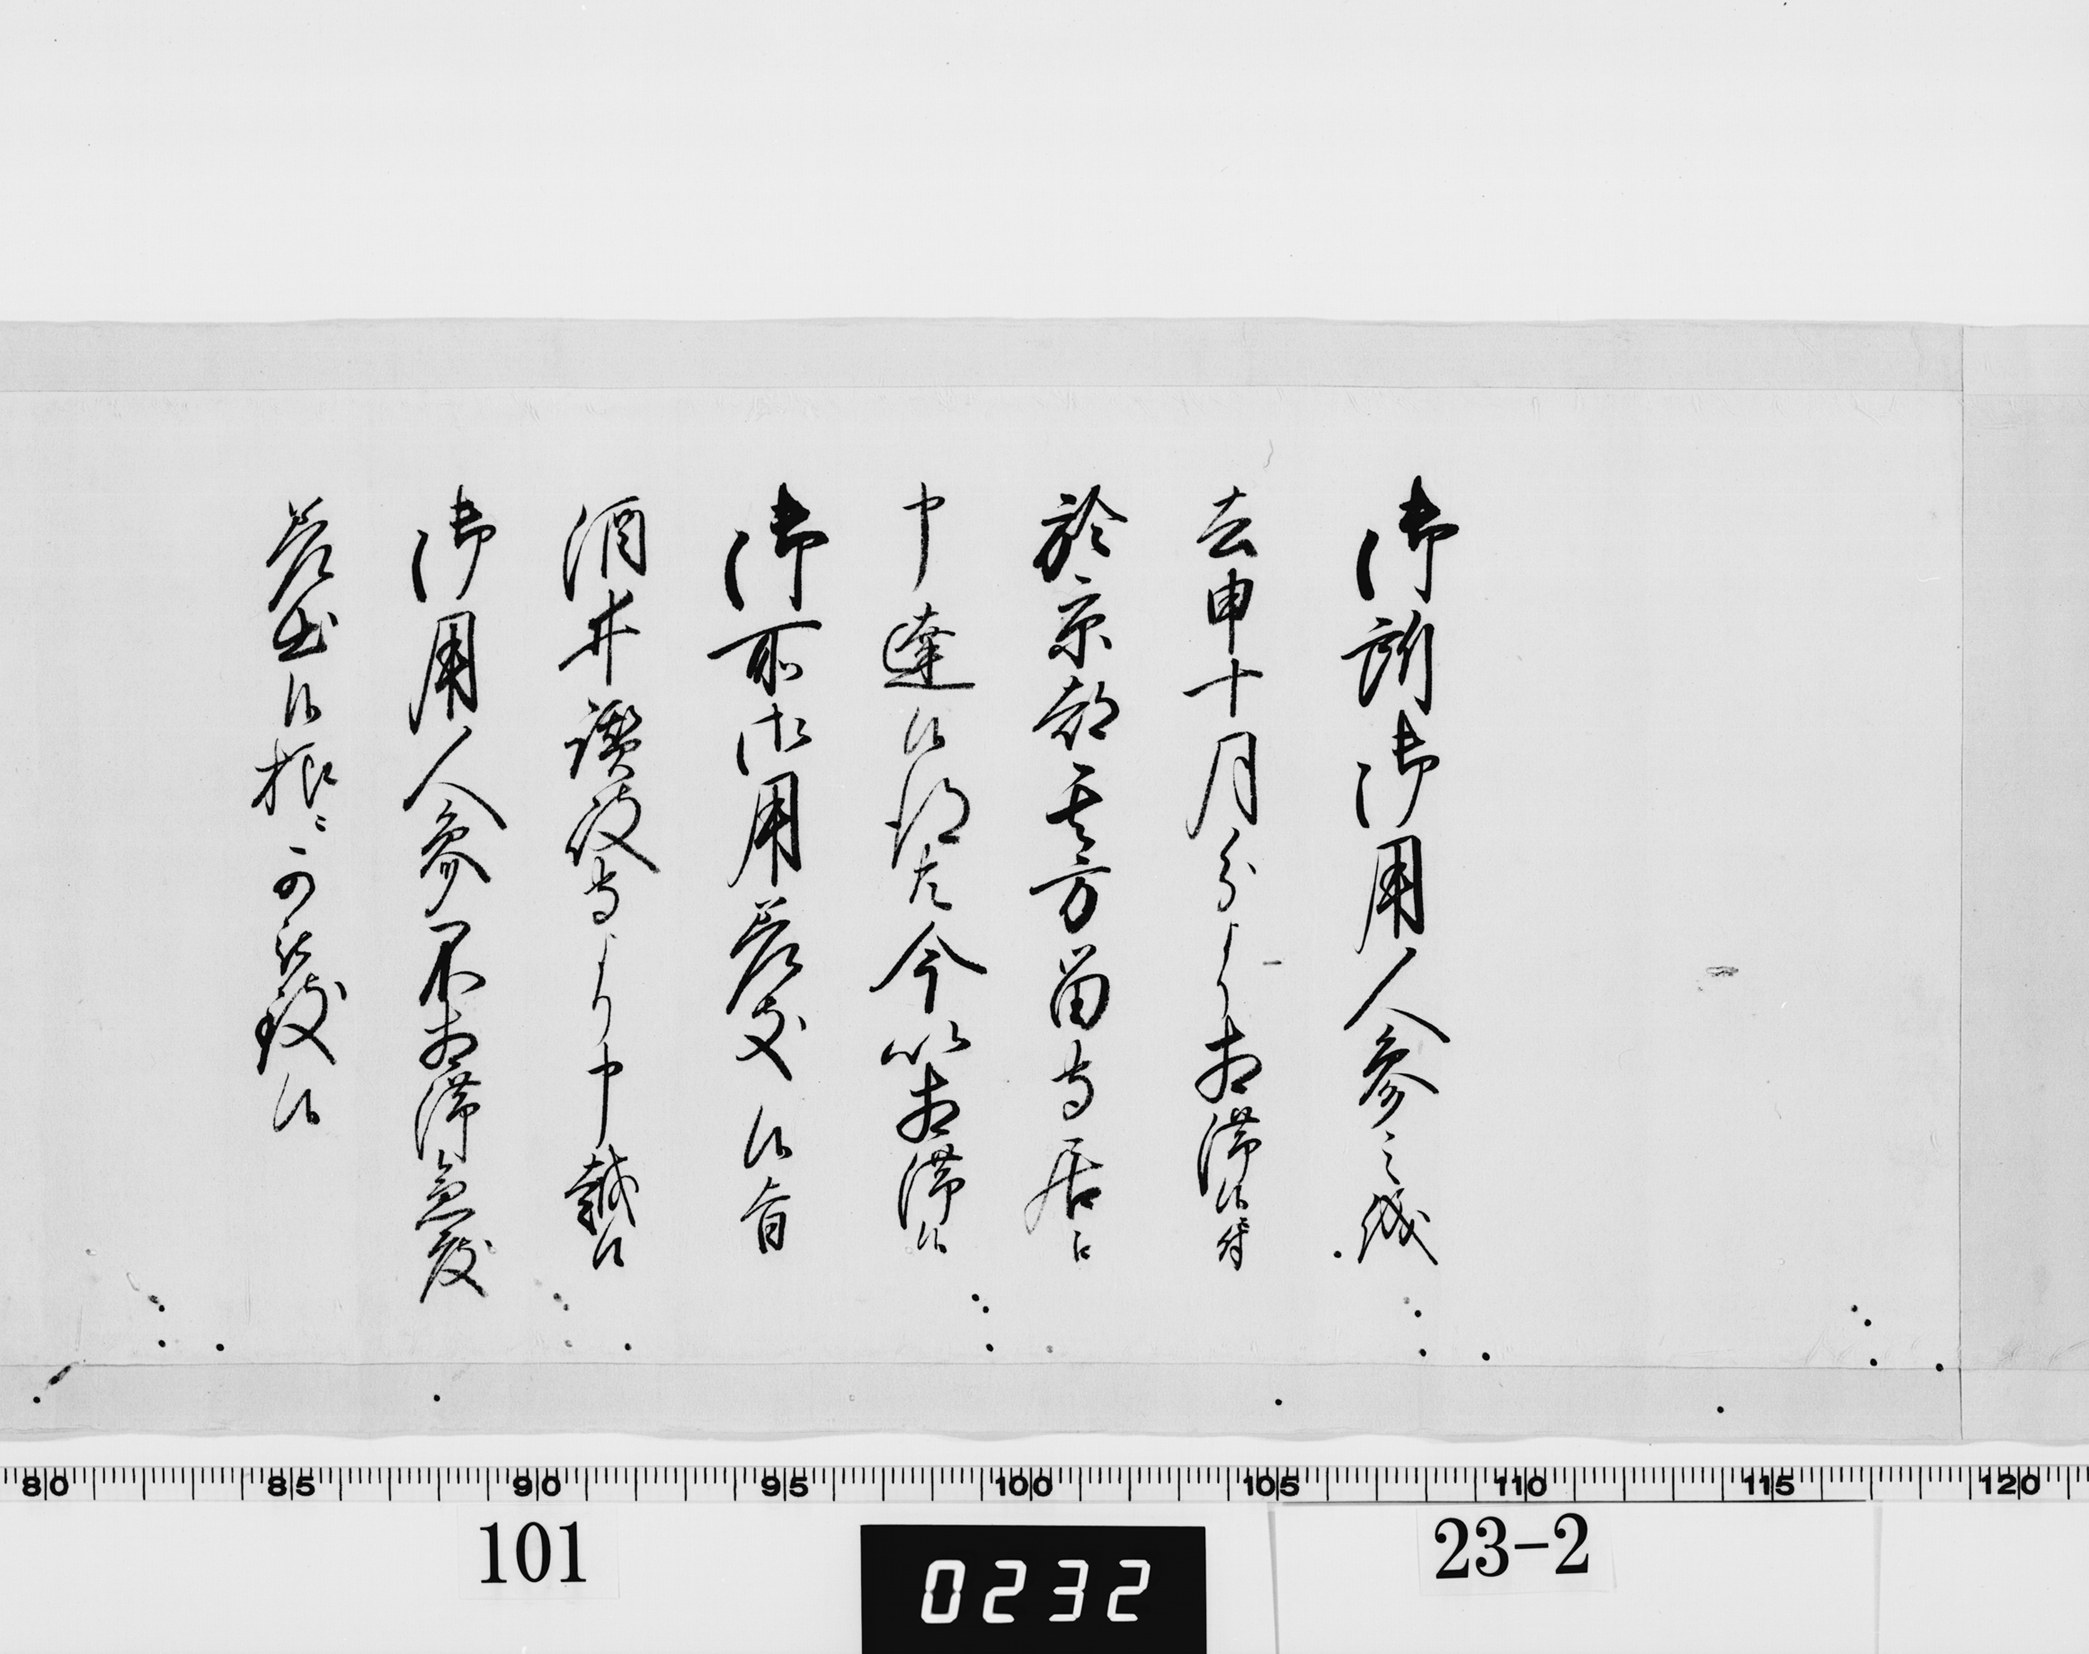 御所御用人参之儀
去申十月分より相滞候付
於京都其方留守居江
申達候得共今以相滞候
御所御用差支候旨
酒井讃岐守より申越候
御用人参不相滞急度
差出候様ニ可被致候
80 85 90 95 100 105 110 115 120
101 0232 23-2